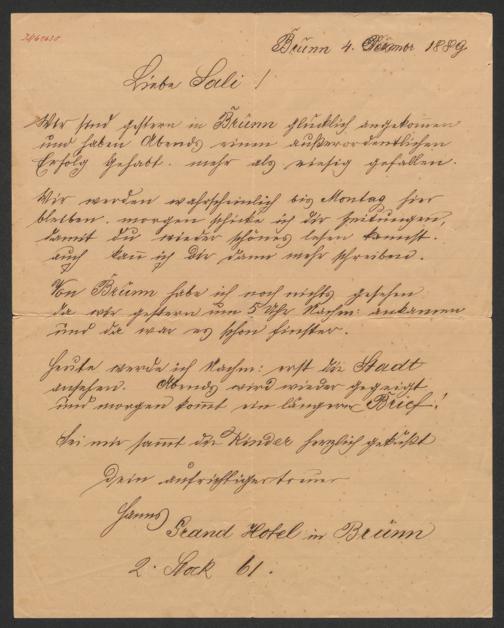 Brünn 4. Dezember 1889
Liebe Sali!
Wir sind gestern in Brünn glücklich angekommen
und haben Abends einen außerordentlichen
Erfolg gehabt. mehr als riesig gefallen.
Wir werden wahrscheinlich bis Montag hier
bleiben. morgen schicke ich dir Zeitungen,
damit du wieder schönes lesen kannst.
auch kan ich Dir dann mehr schreiben.
Von Brünn habe ich noch nichts gesehen
da wir gestern um 5 Uhr Nachm: ankamen
und da war es schon finster.
Heute werde ich Nachm: erst die Stadt
ansehen. Abends wird wieder gegeigt
und morgen kommt ein längerer Brief!
Sei mir samt die Kinder herzlich geküßt
Dein aufrichtiger treuer
Hanns
Grand Hotel in Brünn
2. Stock 61.